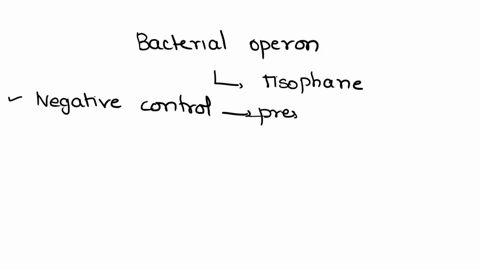 Bacterial operon
↳ Tisophane
✓ Negative control → pres